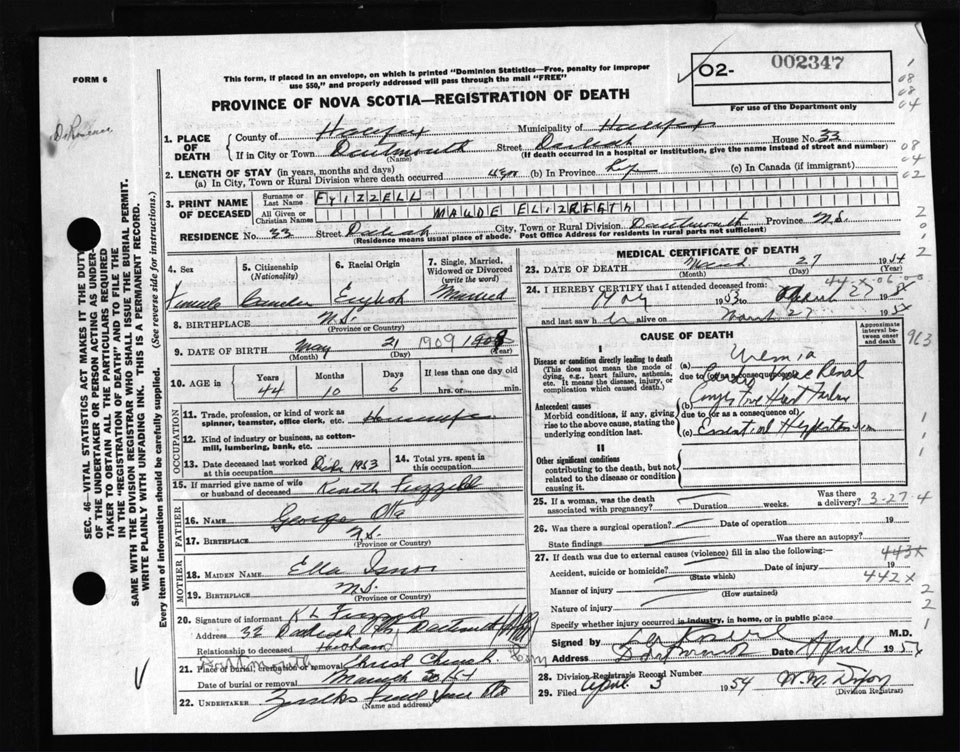 FORM 6
This form, if placed in an envelope, on which is printed "Dominion Statistics—Free, penalty for improper
use $50," and properly addressed will pass through the mail "FREE"
PROVINCE OF NOVA SCOTIA—REGISTRATION OF DEATH
02- 002347
For use of the Department only
SEC. 46—VITAL STATISTICS ACT MAKES IT THE DUTY
OF THE UNDERTAKER OR PERSON ACTING AS UNDER-
TAKER TO OBTAIN ALL THE PARTICULARS REQUIRED
IN THE "REGISTRATION OF DEATH" AND TO FILE THE
SAME WITH THE DIVISION REGISTRAR WHO SHALL ISSUE THE BURIAL PERMIT.
WRITE PLAINLY WITH UNFADING INK. THIS IS A PERMANENT RECORD.
Every item of information should be carefully supplied. (See reverse side for instructions.)
1. PLACE OF DEATH
County of Halifax Municipality of Halifax
If in City or Town Dartmouth Street House No. 33
(Name) (If death occurred in a hospital or institution, give the name instead of street and number)
2. LENGTH OF STAY (in years, months and days)
(a) In City, Town or Rural Division where death occurred 4 yrs (b) In Province Life (c) In Canada (if immigrant)
3. PRINT NAME OF DECEASED
Surname or Last Name
All Given or Christian Names MAUDE ELIZABETH
RESIDENCE No. 33 Street City, Town or Rural Division Dartmouth Province N.S.
(Residence means usual place of abode. Post Office Address for residents in rural parts not sufficient)
4. Sex Female
5. Citizenship (Nationality) Canadian
6. Racial Origin English
7. Single, Married, Widowed or Divorced (write the word) Married
8. BIRTHPLACE N.S.
(Province or Country)
9. DATE OF BIRTH May 21 1909
(Month) (Day) (Year)
10. AGE in Years 44 Months 10 Days 6 If less than one day old hrs. or min.
OCCUPATION
11. Trade, profession, or kind of work as spinner, teamster, office clerk, etc. Housewife
12. Kind of industry or business, as cotton-mill, lumbering, bank, etc.
13. Date deceased last worked at this occupation 1953
14. Total yrs. spent in this occupation
15. If married give name of wife or husband of deceased Kenneth Frizzell
FATHER
16. NAME George
17. BIRTHPLACE N.S.
(Province or Country)
MOTHER
18. MAIDEN NAME Ella Isnor
19. BIRTHPLACE N.S.
(Province or Country)
20. Signature of informant K L Frizzell
Address 33 Dartmouth
Relationship to deceased Husband
21. Place of burial, cremation or removal Christ Church Dartmouth
Date of burial or removal March
22. UNDERTAKER
(Name and address)
MEDICAL CERTIFICATE OF DEATH
23. DATE OF DEATH March 27 1954
(Month) (Day) (Year)
24. I HEREBY CERTIFY that I attended deceased from:
May 1953 to March 27 195
and last saw her alive on March 27 195
CAUSE OF DEATH
Approximate interval between onset and death
I
Disease or condition directly leading to death
(This does not mean the mode of dying, e.g., heart failure, asthenia, etc. It means the disease, injury, or complication which caused death.)
(a) Uremia
due to (or as a consequence of)
Antecedent causes
Morbid conditions, if any, giving rise to the above cause, stating the underlying condition last.
(b) Congestive Heart Failure
due to (or as a consequence of)
(c) Essential Hypertension
II
Other significant conditions
contributing to the death, but not related to the disease or condition causing it.
25. If a woman, was the death associated with pregnancy? Duration weeks. Was there a delivery? 3-27-4
26. Was there a surgical operation? Date of operation 19
State findings Was there an autopsy?
27. If death was due to external causes (violence) fill in also the following:—
443X
Accident, suicide or homicide? Date of injury 19
(State which) 442X
Manner of injury (How sustained)
Nature of injury
Specify whether injury occurred in industry, in home, or in public place
Signed by M.D.
Address Dartmouth Date April 195
28. Division Registrar's Record Number
29. Filed April 3 1954 W. M.
(Division Registrar)